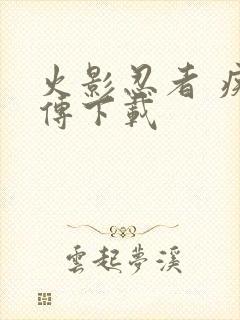 火影忍者 疾
傳下載
雲起夢溪